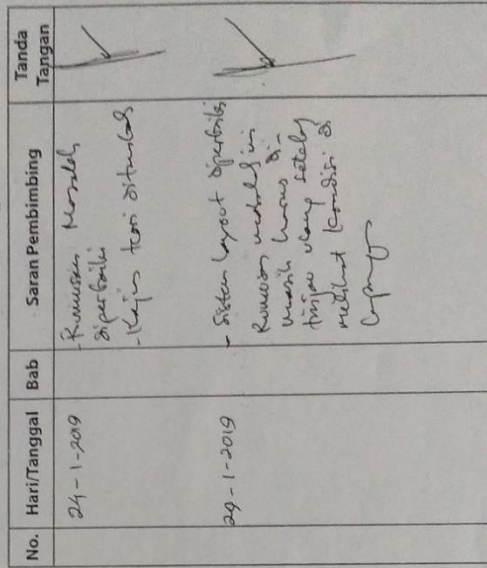 No. Hari/Tanggal Bab Saran Pembimbing Tanda Tangan
24-1-2019
- Rumusan Masalah
diperbaiki
- Kajian teori ditambah
29-1-2019
- Sistem layout diperbaiki
Rumusan masalah ini
masih harus di-
tinjau ulang setelah
melihat kondisi di